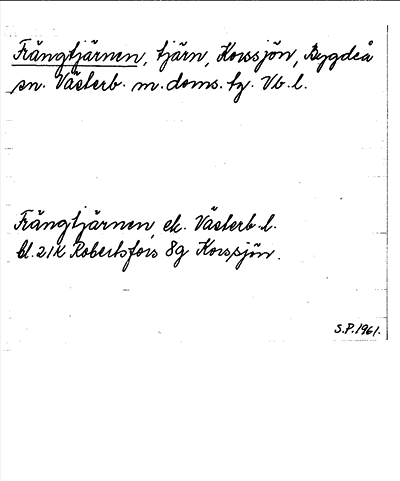 Frängtjärnen, tjärn, Korssjön, Bygdeå
sn. Västerb. m. doms. tg. Vb. l.
Frängtjärnen, ek. Västerb. l.
bl. 21K Robertsfors 8g Korssjön.
S.P. 1961.